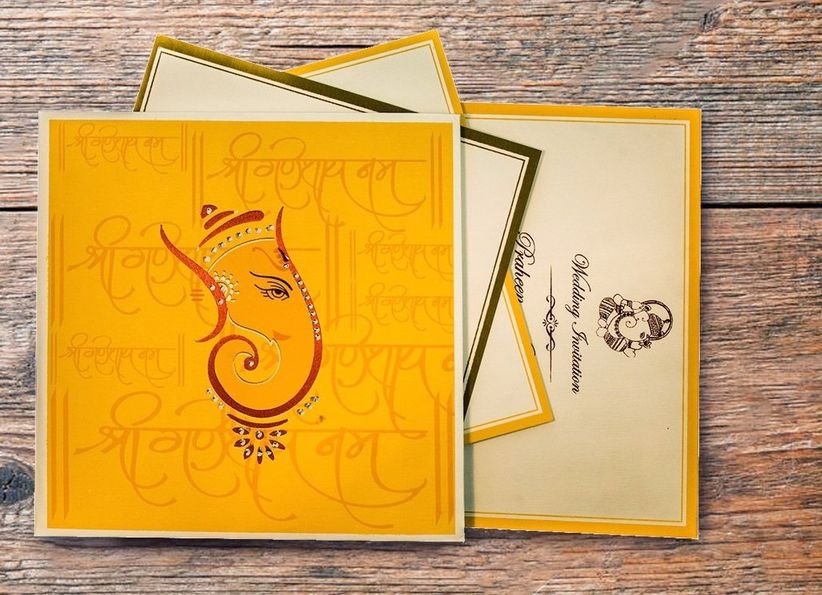 ॥ श्री गणेशाय नम ॥
॥ श्री गणेशाय नम ॥
॥ श्री गणेशाय
॥ श्री गणेशाय नम
॥ श्री गणेशाय नम
श्री गणेशाय नम ॥
गणेशाय नम
॥ श्री गणेशाय नम ॥
Wedding Invitation